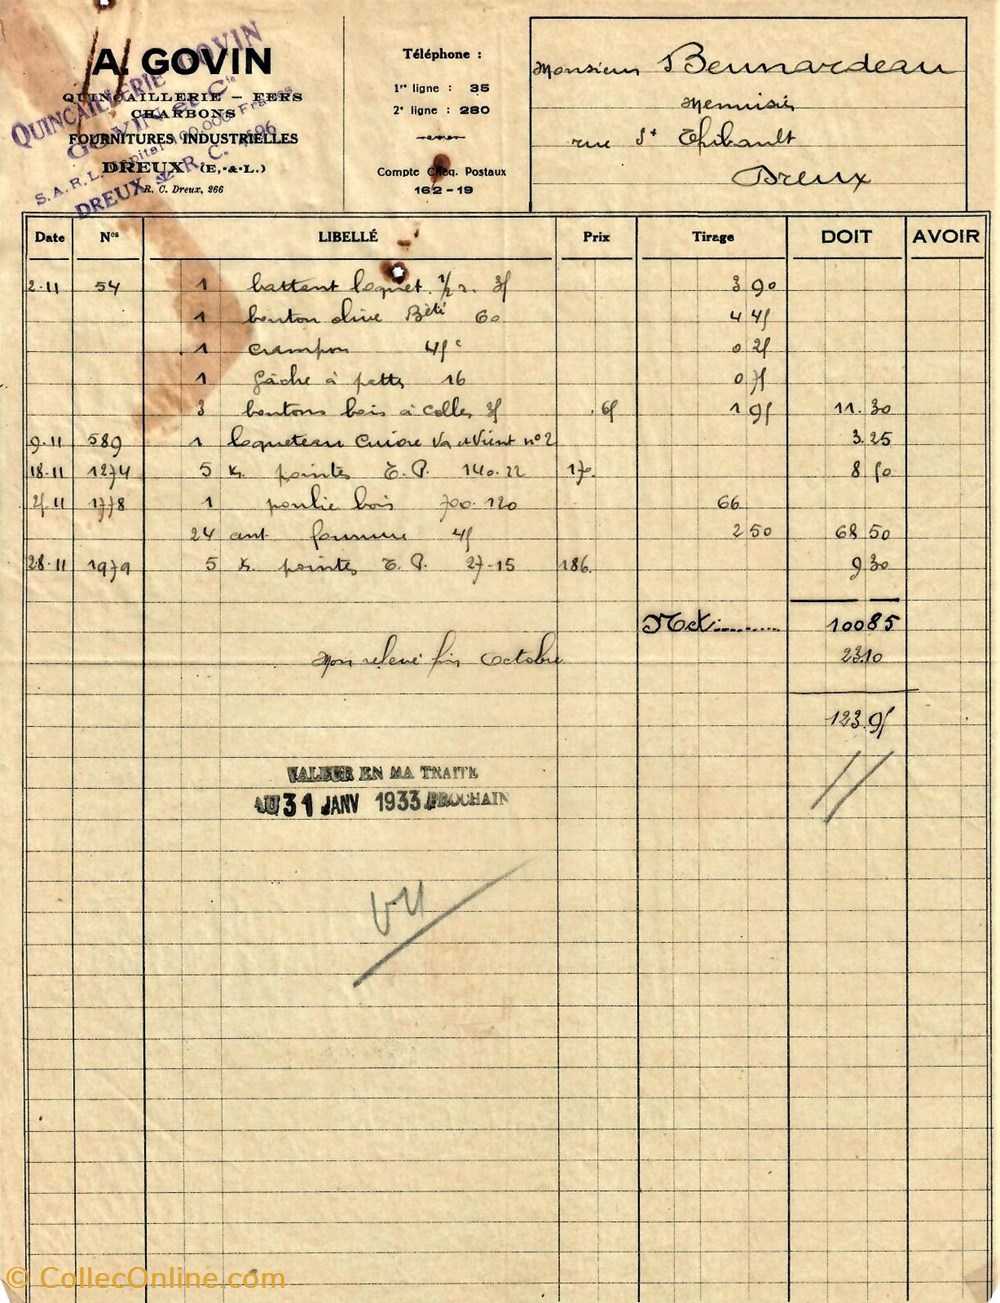 A. GOVIN
QUINCAILLERIE — FERS
CHARBONS
FOURNITURES INDUSTRIELLES
DREUX (E.-&-L.)
R. C. Dreux, 266
QUINCAILLERIE GOVIN
GOVIN et Cie
S.A.R.L. Capital 100.000 Francs
DREUX R. C.
Téléphone :
1re ligne : 35
2e ligne : 280
Compte Chèq. Postaux
162-19
Monsieur Bennardeau
Menuisier
rue St Thibault
Dreux
Date Nos LIBELLÉ Prix Tirage DOIT AVOIR
2-11 54 1 battant loquet 1/2 r. 35 3 90
1 bouton olive 60 4 45
1 crampon 45 c 0 25
1 gâche à pattes 16 0 75
3 boutons bois à coller 35 .65 1 95 11.30
9.11 589 1 loqueteau cuivre va et Vient no 2 3.25
18-11 1274 5 k. pointes T.P. 140.22 170. 8 50
25.11 1778 1 poulie bois 700.120 66
24 45 2 50 68 50
28.11 1979 5 k. pointes T.P. 27-15 186. 9 30
Net 100 85
Mon relevé fin Octobre 23.10
123.95
VALEUR EN MA TRAITE
AU 31 JANV 1933 PROCHAIN
VU
© CollecOnline.com